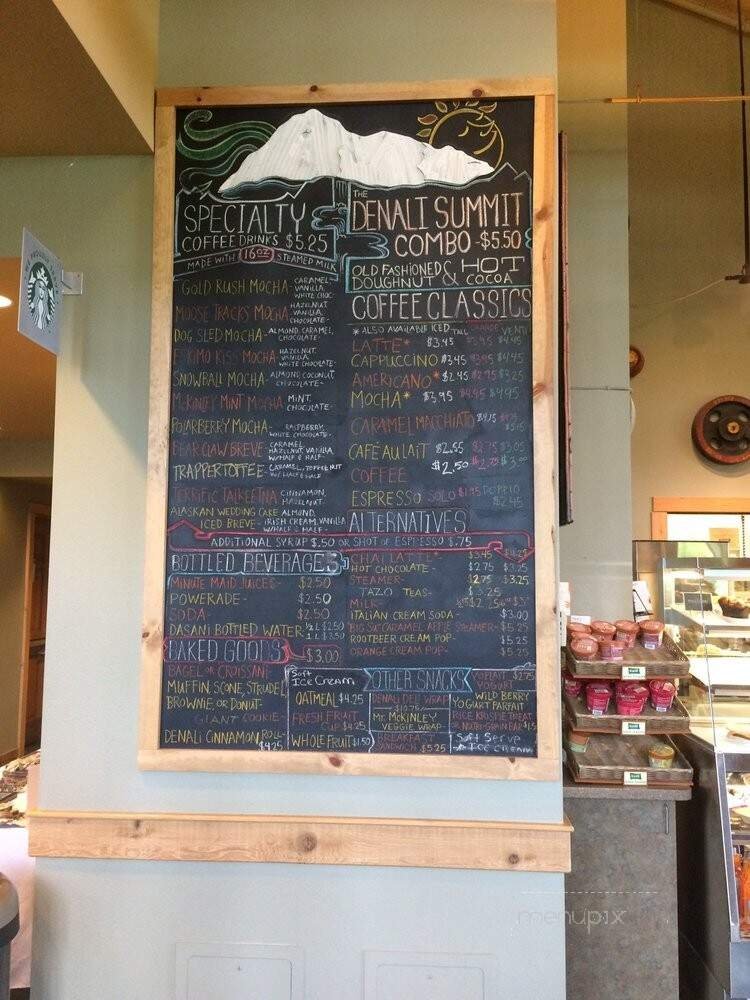 SPECIALTY
COFFEE DRINKS $5.25
MADE WITH 16oz STEAMED MILK
GOLD RUSH MOCHA- CARAMEL, VANILLA, WHITE CHOC-
MOOSE TRACKS MOCHA- HAZELNUT, VANILLA, CHOCOLATE-
DOG SLED MOCHA- ALMOND, CARAMEL, CHOCOLATE-
ESKIMO KISS MOCHA- HAZELNUT, VANILLA, WHITE CHOCOLATE-
SNOWBALL MOCHA- ALMOND, COCONUT, CHOCOLATE-
McKINLEY MINT MOCHA- MINT, CHOCOLATE-
POLARBERRY MOCHA- RASPBERRY, WHITE CHOCOLATE-
BEAR CLAW BREVE- CARAMEL, HAZELNUT, VANILLA, W/HALF & HALF-
TRAPPER TOFFEE- CARAMEL, TOFFEE NUT W/HALF & HALF
TERRIFIC TALKEETNA- CINNAMON, HAZELNUT-
ALASKAN WEDDING CAKE ICED BREVE- ALMOND, IRISH CREAM, VANILLA W/HALF & HALF-
THE
DENALI SUMMIT
COMBO - $5.50
OLD FASHIONED DOUGHNUT & HOT COCOA
COFFEE CLASSICS
*ALSO AVAILABLE ICED TALL GRANDE VENTI
LATTE* $3.45 $3.95 $4.45
CAPPUCCINO $3.45 $3.95 $4.45
AMERICANO* $2.45 $2.95 $3.25
MOCHA* $3.95 $4.45 $4.95
CARAMEL MACCHIATO $4.15
CAFÉ AU LAIT $2.55 $2.75 $3.05
COFFEE $2.50 $2.75 $3.00
ESPRESSO SOLO $1.95 DOPPIO $2.45
ALTERNATIVES
ADDITIONAL SYRUP $.50 OR SHOT OF ESPRESSO $.75
CHAI LATTE* $3.45 $4.25
HOT CHOCOLATE- $2.75 $3.25
STEAMER- $2.75 $3.25
TAZO TEAS- $3.25
MILK-
ITALIAN CREAM SODA- $3.00
BIG SUR CARAMEL APPLE STEAMER- $5.25
ROOTBEER CREAM POP- $5.25
ORANGE CREAM POP- $5.25
BOTTLED BEVERAGES
MINUTE MAID JUICES- $2.50
POWERADE- $2.50
SODA- $2.50
DASANI BOTTLED WATER- ½L $2.50
1L $3.50
BAKED GOODS $3.00
BAGEL OR CROISSANT
MUFFIN, SCONE, STRUDEL
BROWNIE OR DONUT-
GIANT COOKIE-
DENALI CINNAMON ROLL- $4.25
Soft
ICE CREAM
OATMEAL $4.25
FRESH FRUIT CUP $4.25
WHOLE FRUIT $1.50
OTHER SNACKS
DENALI DELI WRAP $10.75
Mr. McKINLEY VEGGIE WRAP
BREAKFAST SANDWICH $5.25
YOPLAIT YOGURT $2.75
WILD BERRY YOGURT PARFAIT
RICE KRISPIE TREAT
Soft Serve
ICE CREAM
menupix